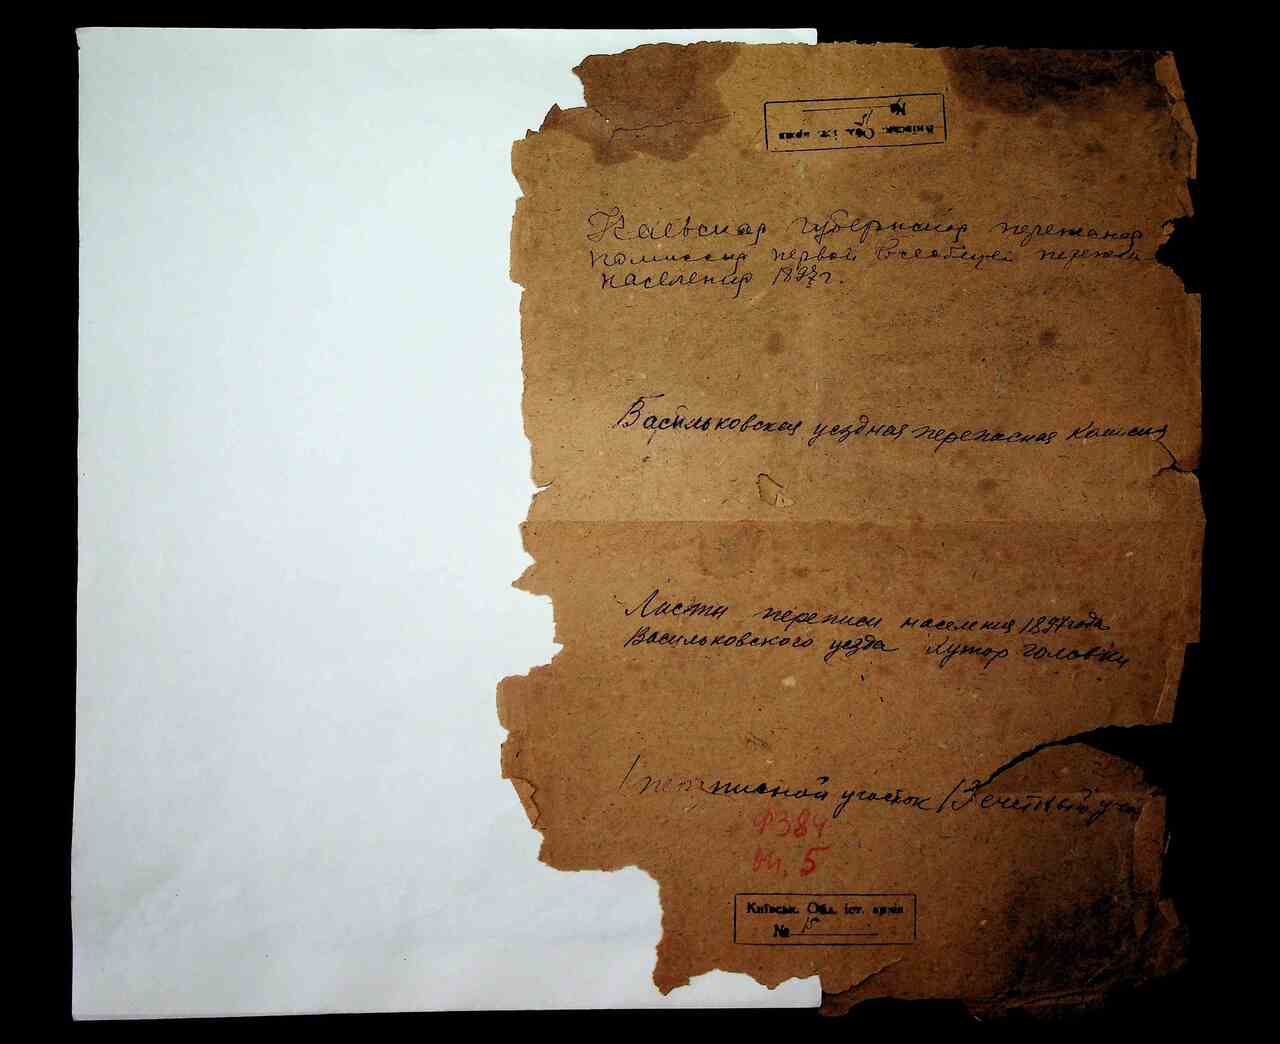 Київськ. Обл. іст. архів
№ 15
Киевская губернская перепесная
комиссия первой всеобщей переписи
населения 1897 г.
Васильковская уездная переписная комисия
Листы переписи населения 1897 года
Васильковского уезда Хутор Головки
1 переписной участок 13 счетный уча
Ф384
оп. 5
Київськ. Обл. іст. архів
№ 15